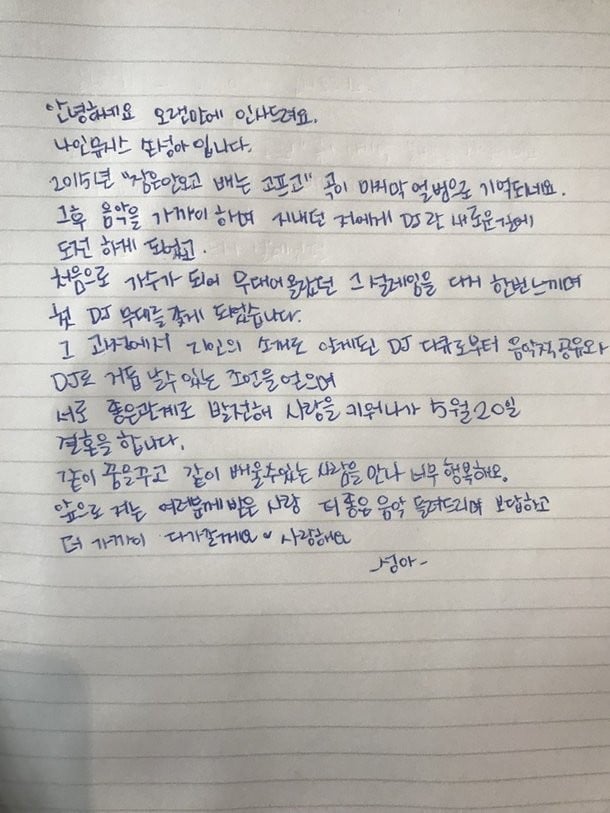 안녕하세요 오랜만에 인사드려요.
나인뮤지스 손성아 입니다.
2015년 "잠은안오고 배는 고프고" 곡이 마지막 앨범으로 기억되네요.
그후 음악을 가까이 하며 지내던 저에게 DJ란 새로운 점에
도전 하게 되었고.
처음으로 가수가 되어 무대에 올랐던 그 설레임을 다시 한번느끼며
첫 DJ 무대를 갖게 되었습니다.
그 과정에서 지인의 소개로 알게된 DJ 다큐로부터 음악적공유와
DJ로 거듭 날수 있는 조언을 얻으며
서로 좋은관계로 발전해 사랑을 키워나가 5월 20일
결혼을 합니다.
같이 꿈을꾸고 같이 배울수있는 사람을 만나 너무 행복해요.
앞으로 저는 여러분께 받은 사랑 더 좋은 음악 들려드리며 보답하고
더 가까이 다가갈게요 사랑해요
성아-